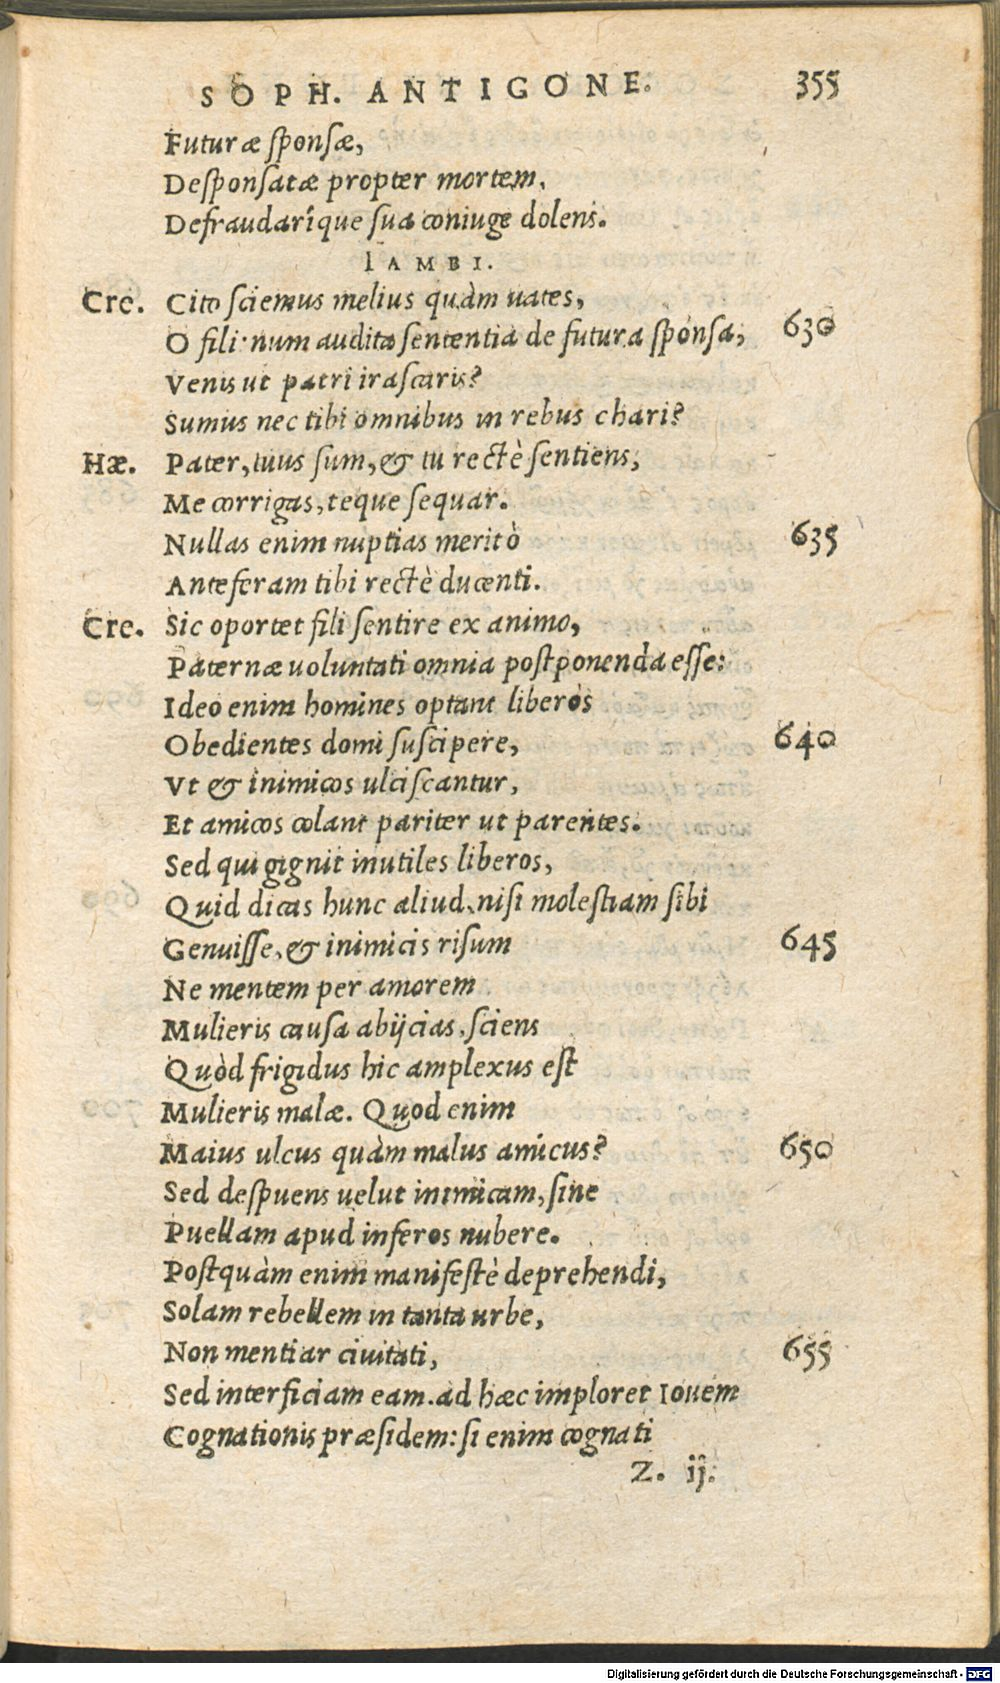 SOPH. ANTIGONE. 355
Futuræ sponsæ,
Desponsatæ propter mortem,
Defraudariq́ue sua coniuge dolens.
IAMBI.
Cre. Cito sciemus melius quàm uates,
O fili: num audita sententia de futura sponsa, 630
Venis ut patri irascaris?
Sumus nec tibi omnibus in rebus chari?
Hæ. Pater, tuus sum, & tu rectè sentiens,
Me corrigas, teque sequar.
Nullas enim nuptias meritò 635
Anteferam tibi rectè ducenti.
Cre. Sic oportet fili sentire ex animo,
Paternæ uoluntati omnia postponenda esse:
Ideo enim homines optant liberos
Obedientes domi suscipere, 640
Vt & inimicos ulciscantur,
Et amicos colant pariter ut parentes.
Sed qui gignit inutiles liberos,
Quid dicas hunc aliud, nisi molestiam sibi
Genuisse, & inimicis risum 645
Ne mentem per amorem
Mulieris causa abijcias, sciens
Quòd frigidus hic amplexus est
Mulieris malæ. Quod enim
Maius ulcus quàm malus amicus? 650
Sed despuens uelut inimicam, sine
Puellam apud inferos nubere.
Postquàm enim manifestè deprehendi,
Solam rebellem in tanta urbe,
Non mentiar ciuitati, 655
Sed interficiam eam. ad hæc imploret Iouem
Cognationis præsidem: si enim cognati
Z. ij.
Digitalisierung gefördert durch die Deutsche Forschungsgemeinschaft - DFG